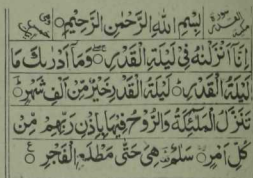 بِسْمِ اللهِ الرَّحْمٰنِ الرَّحِيْمِ
اِنَّا اَنْزَلْنٰهُ فِيْ لَيْلَةِ الْقَدْرِ وَمَا اَدْرٰىكَ مَا
لَيْلَةُ الْقَدْرِ لَيْلَةُ الْقَدْرِ خَيْرٌ مِّنْ اَلْفِ شَهْرٍ
تَنَزَّلُ الْمَلٰٓئِكَةُ وَالرُّوْحُ فِيْهَا بِاِذْنِ رَبِّهِمْ مِّنْ
كُلِّ اَمْرٍ سَلٰمٌ هِيَ حَتّٰى مَطْلَعِ الْفَجْرِ